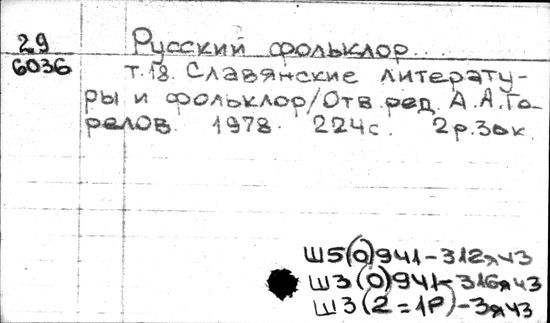 29
6036
Русский фольклор...
т.18. Славянские литерату-
ры и фольклор/Отв.ред. А.А.Го-
релов. 1978. 224с. 2р.30к.
Ш5(0)941-312я43
Ш3(0)941-316я43
Ш3(2=1Р)-3я43